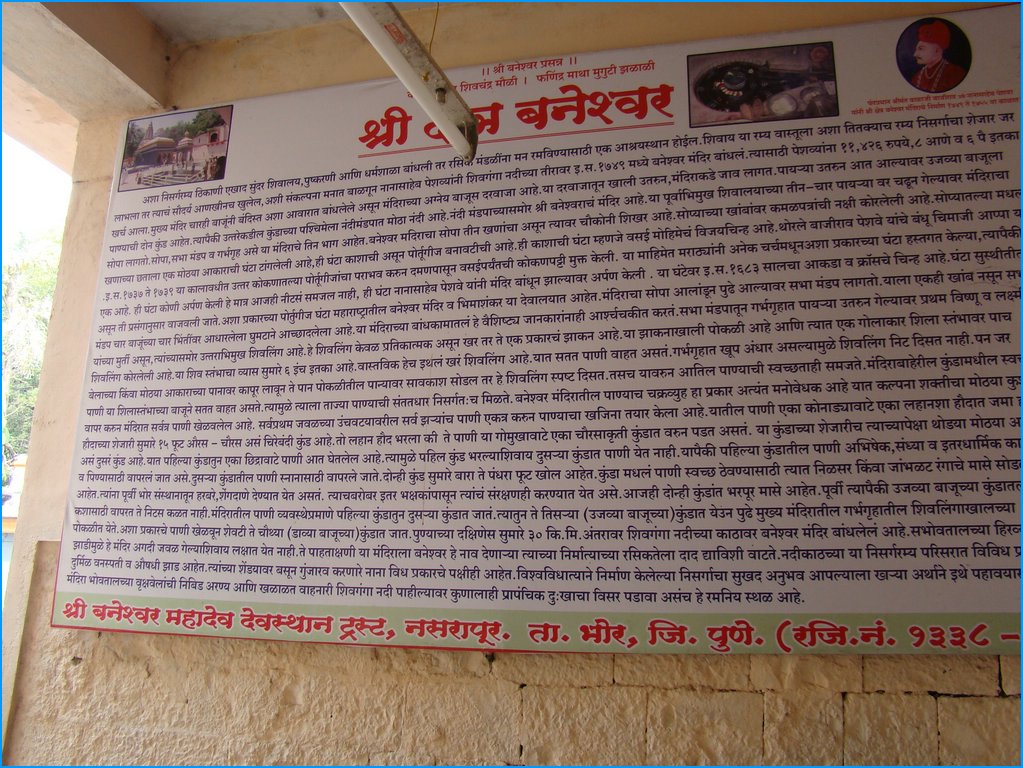 ।। श्री बनेश्वर प्रसन्न ।।
शिवचंद्र मौळी । फणिंद्र माथा मुगुटी झळाळी
श्री बनेश्वर
अशा निसर्गरम्य ठिकाणी एखाद सुंदर शिवालय,पुष्करणी आणि धर्मशाळा बांधली तर रसिक मंडळींना मन रमविण्यासाठी एक आश्रयस्थान होईल.शिवाय या रम्य वास्तूला अशा तितक्याच रम्य निसर्गाचा शेजार जर
लाभला तर त्याचं सौदर्य आणखीनच खुलेल,अशी संकल्पना मनात बाळगून नानासाहेब पेशव्यांनी शिवगंगा नदीच्या तीरावर इ.स.१७४९ मध्ये बनेश्वर मंदिर बांधलं.त्यासाठी पेशव्यांना ११,४२६ रुपये,८ आणे व ६ पै इतका
खर्च आला.मुख्य मंदिर चारही बाजूंनी बंदिस्त अशा आवारात बांधलेले असून मंदिराच्या अग्नेय बाजूस दरवाजा आहे.या दरवाजातून खाली उतरुन,मंदिराकडे जाव लागत.पायऱ्या उतरुन आत आल्यावर उजव्या बाजूला
पाण्याची दोन कुंड आहेत.त्यापैकी उत्तरेकडील कुंडाच्या पश्चिमेला नंदीमंडपात मोठा नंदी आहे.नंदी मंडपाच्यासमोर श्री बनेश्वराचं मंदिर आहे.या पूर्वाभिमुख शिवालयाच्या तीन–चार पायऱ्या वर चढून गेल्यावर मंदिराचा
सोपा लागतो.सोपा,सभा मंडप व गर्भगृह असे या मंदिराचे तिन भाग आहेत.बनेश्वर मदिराचा सोपा तीन खणांचा असून त्यावर चौकोनी शिखर आहे.सोप्याच्या खांबांवर कमळपत्रांची नक्षी कोरलेली आहे.सोप्यातल्या मधल्या
खणाच्या छताला एक मोठया आकाराची घंटा टांगलेली आहे,ही घंटा काशाची असून पोर्तूगीज बनावटीची आहे.ही काशाची घंटा म्हणजे वसई मोहिमेचं विजयचिन्ह आहे.थोरले बाजीराव पेशवे यांचे बंधू चिमाजी आप्पा या
.इ.स.१७३७ ते १७३९ या कालावधीत उत्तर कोकणातल्या पोर्तूगीजांचा पराभव करुन दमणपासून वसईपर्यंतची कोकणपट्टी मुक्त केली. या माहिमेत मराठ्यांनी अनेक चर्चमधूनअशा प्रकारच्या घंटा हस्तगत केल्या,त्यापैकी
एक आहे. ही घंटा कोणी अर्पण केली हे मात्र आजही नीटसं समजल नाही, ही घंटा नानासाहेब पेशवे यांनी मंदिर बांधून झाल्यावर अर्पण केली . या घंटेवर इ.स.१६८३ सालचा आकडा व क्रॉसचे चिन्ह आहे.घंटा सुस्थीतीत
असून ती प्रसंगनुसार वाजवली जाते.अशा प्रकारच्या पोर्तुगीज घंटा महाराष्ट्रातील बनेश्वर मंदिर व भिमाशंकर या देवालयात आहेत.मंदिराचा सोपा आलांडून पुढे आल्यावर सभा मंडप लागतो.याला एकही खांब नसून सभा
मंडप चार बाजूंच्या चार भिंतींवर आधारलेला घुमटाने आच्छादलेला आहे.या मंदिराच्या बांधकामातलं हे वैशिष्ट्य जानकारांनाही आश्चर्यचकीत करतं.सभा मंडपातून गर्भगृहात पायऱ्या उतरुन गेल्यावर प्रथम विष्णू व लक्ष्मी
यांच्या मुर्ती असून,त्यांच्यासमोर उत्तराभिमुख शिवलिंग आहे.हे शिवलिंग केवळ प्रतिकात्मक असून खर तर ते एक प्रकारचं झाकन आहे.या झाकनाखाली पोकळी आहे आणि त्यात एक गोलाकार शिला स्तंभावर पाच
शिवलिंग कोरलेली आहे.या शिव स्तंभाचा व्यास सुमारे ६ इंच इतका आहे.वास्तविक हेच इथलं खरं शिवलिंग आहे.यात सतत पाणी वाहत असतं.गर्भगृहात खूप अंधार असल्यामुळे शिवलिंग निट दिसत नाही.पन जर
बेलाच्या किंवा मोठया आकाराच्या पानावर कापूर लावून ते पान पोकळीतील पान्यावर सावकाश सोडल तर हे शिवलिंग स्पष्ट दिसत.तसच यावरुन आतिल पाण्याची स्वच्छताही समजते.मंदिराबाहेरील कुंडामधील स्वच्छ
पाणी या शिलास्तंभाच्या बाजूने सतत वाहत असते.त्यामुळे त्याला ताज्या पाण्याची संततधार निसर्गतःच मिळते. बनेश्वर मंदिरातील पाण्याच चक्रव्युह हा प्रकार अत्यंत मनोवेधक आहे यात कल्पना शक्तीचा मोठया
वापर करुन मंदिरात सर्वत्र पाणी खेळवलेल आहे. सर्वप्रथम जवळच्या उंचवटयावरील सर्व झऱ्यांच पाणी एकत्र करुन पाण्याचा खजिना तयार केला आहे.यातील पाणी एका कोनाड्यावाटे एका लहानशा हौदात जमा
हौदाच्या शेजारी सुमारे १५ फूट औरस – चौरस असं चिरेबंदी कुंड आहे.तो लहान हौद भरला की ते पाणी या गोमुखावाटे एका चौरसाकृती कुंडात वरुन पडत असतं. या कुंडाच्या शेजारीच त्याच्यापेक्षा थोडया मोठया
असं दुसरं कुंड आहे.यात पहिल्या कुंडातुन एका छिद्रावाटे पाणी आत घेतलेल आहे.त्यामुळे पहिल कुंड भरल्याशिवाय दुसऱ्या कुंडात पाणी येत नाही.यापैकी पहिल्या कुंडातील पाणी अभिषेक,संध्या व इतरधार्मिक
व पिण्यासाठी वापरलं जात असे.दुसऱ्या कुंडातील पाणी स्नानासाठी वापरले जाते.दोन्ही कुंड सुमारे बारा ते पंधरा फूट खोल आहेत.कुंडा मधलं पाणी स्वच्छ ठेवण्यासाठी त्यात निळसर किंवा जांभळट रंगाचे मासे
आहेत.त्यांना पूर्वी भोर संस्थानातून हरबरे,शेंगदाणे देण्यात येत असतं. त्याचबरोबर इतर भक्षकांपासून त्यांचं संरक्षणही करण्यात येत असे.आजही दोन्ही कुंडांत भरपूर मासे आहेत.पूर्वी त्यापैकी उजव्या बाजूच्या
कशासाठी वापरत ते निटस कळत नाही.मंदिरातील पाणी व्यवस्थेप्रमाणे पहिल्या कुंडातुन दुसऱ्या कुंडात जातं.त्यातुन ते तिसऱ्या (उजव्या बाजूच्या)कुंडात येउन पुढे मुख्य मंदिरातील गर्भगृहातील शिवलिंगाखालच्या
पोकळीत येते.अशा प्रकारचे पाणी खेळवून शेवटी ते चौथ्या (डाव्या बाजूच्या)कुंडात जातं.पुण्याच्या दक्षिणेस सुमारे ३० कि.मि.अंतरावर शिवगंगा नदीच्या काठावर बनेश्वर मंदिर बांधलेलं आहे.सभोवतालच्या
झाडीमुळे हे मंदिर अगदी जवळ गेल्याशिवाय लक्षात येत नाही.ते पाहताक्षणी या मंदिराला बनेश्वर हे नाव देणाऱ्या त्याच्या निर्मात्याच्या रसिकतेला दाद द्याविशी वाटते.नदीकाठच्या या निसर्गरम्य परिसरात विविध
दुर्मिळ वनस्पती व औषधी झाड आहेत.त्यांच्या शेंडयावर बसून गुंजारव करणारे नाना विध प्रकारचे पक्षीही आहेत.विश्वविधात्याने निर्माण केलेल्या निसर्गाचा सुखद अनुभव आपल्याला खऱ्या अर्थाने इथे पहावयास
मंदिरा भोवतालच्या वृक्षवेलांची निविड अरण्य आणि खळाळत वाहनारी शिवगंगा नदी पाहील्यावर कुणालाही प्रापंचिक दुःखाचा विसर पडावा असंच हे रमनिय स्थळ आहे.
श्री बनेश्वर महादेव देवस्थान ट्रस्ट, नसरापूर. ता. भोर, जि. पुणे. (रजि.नं. १३३८ –